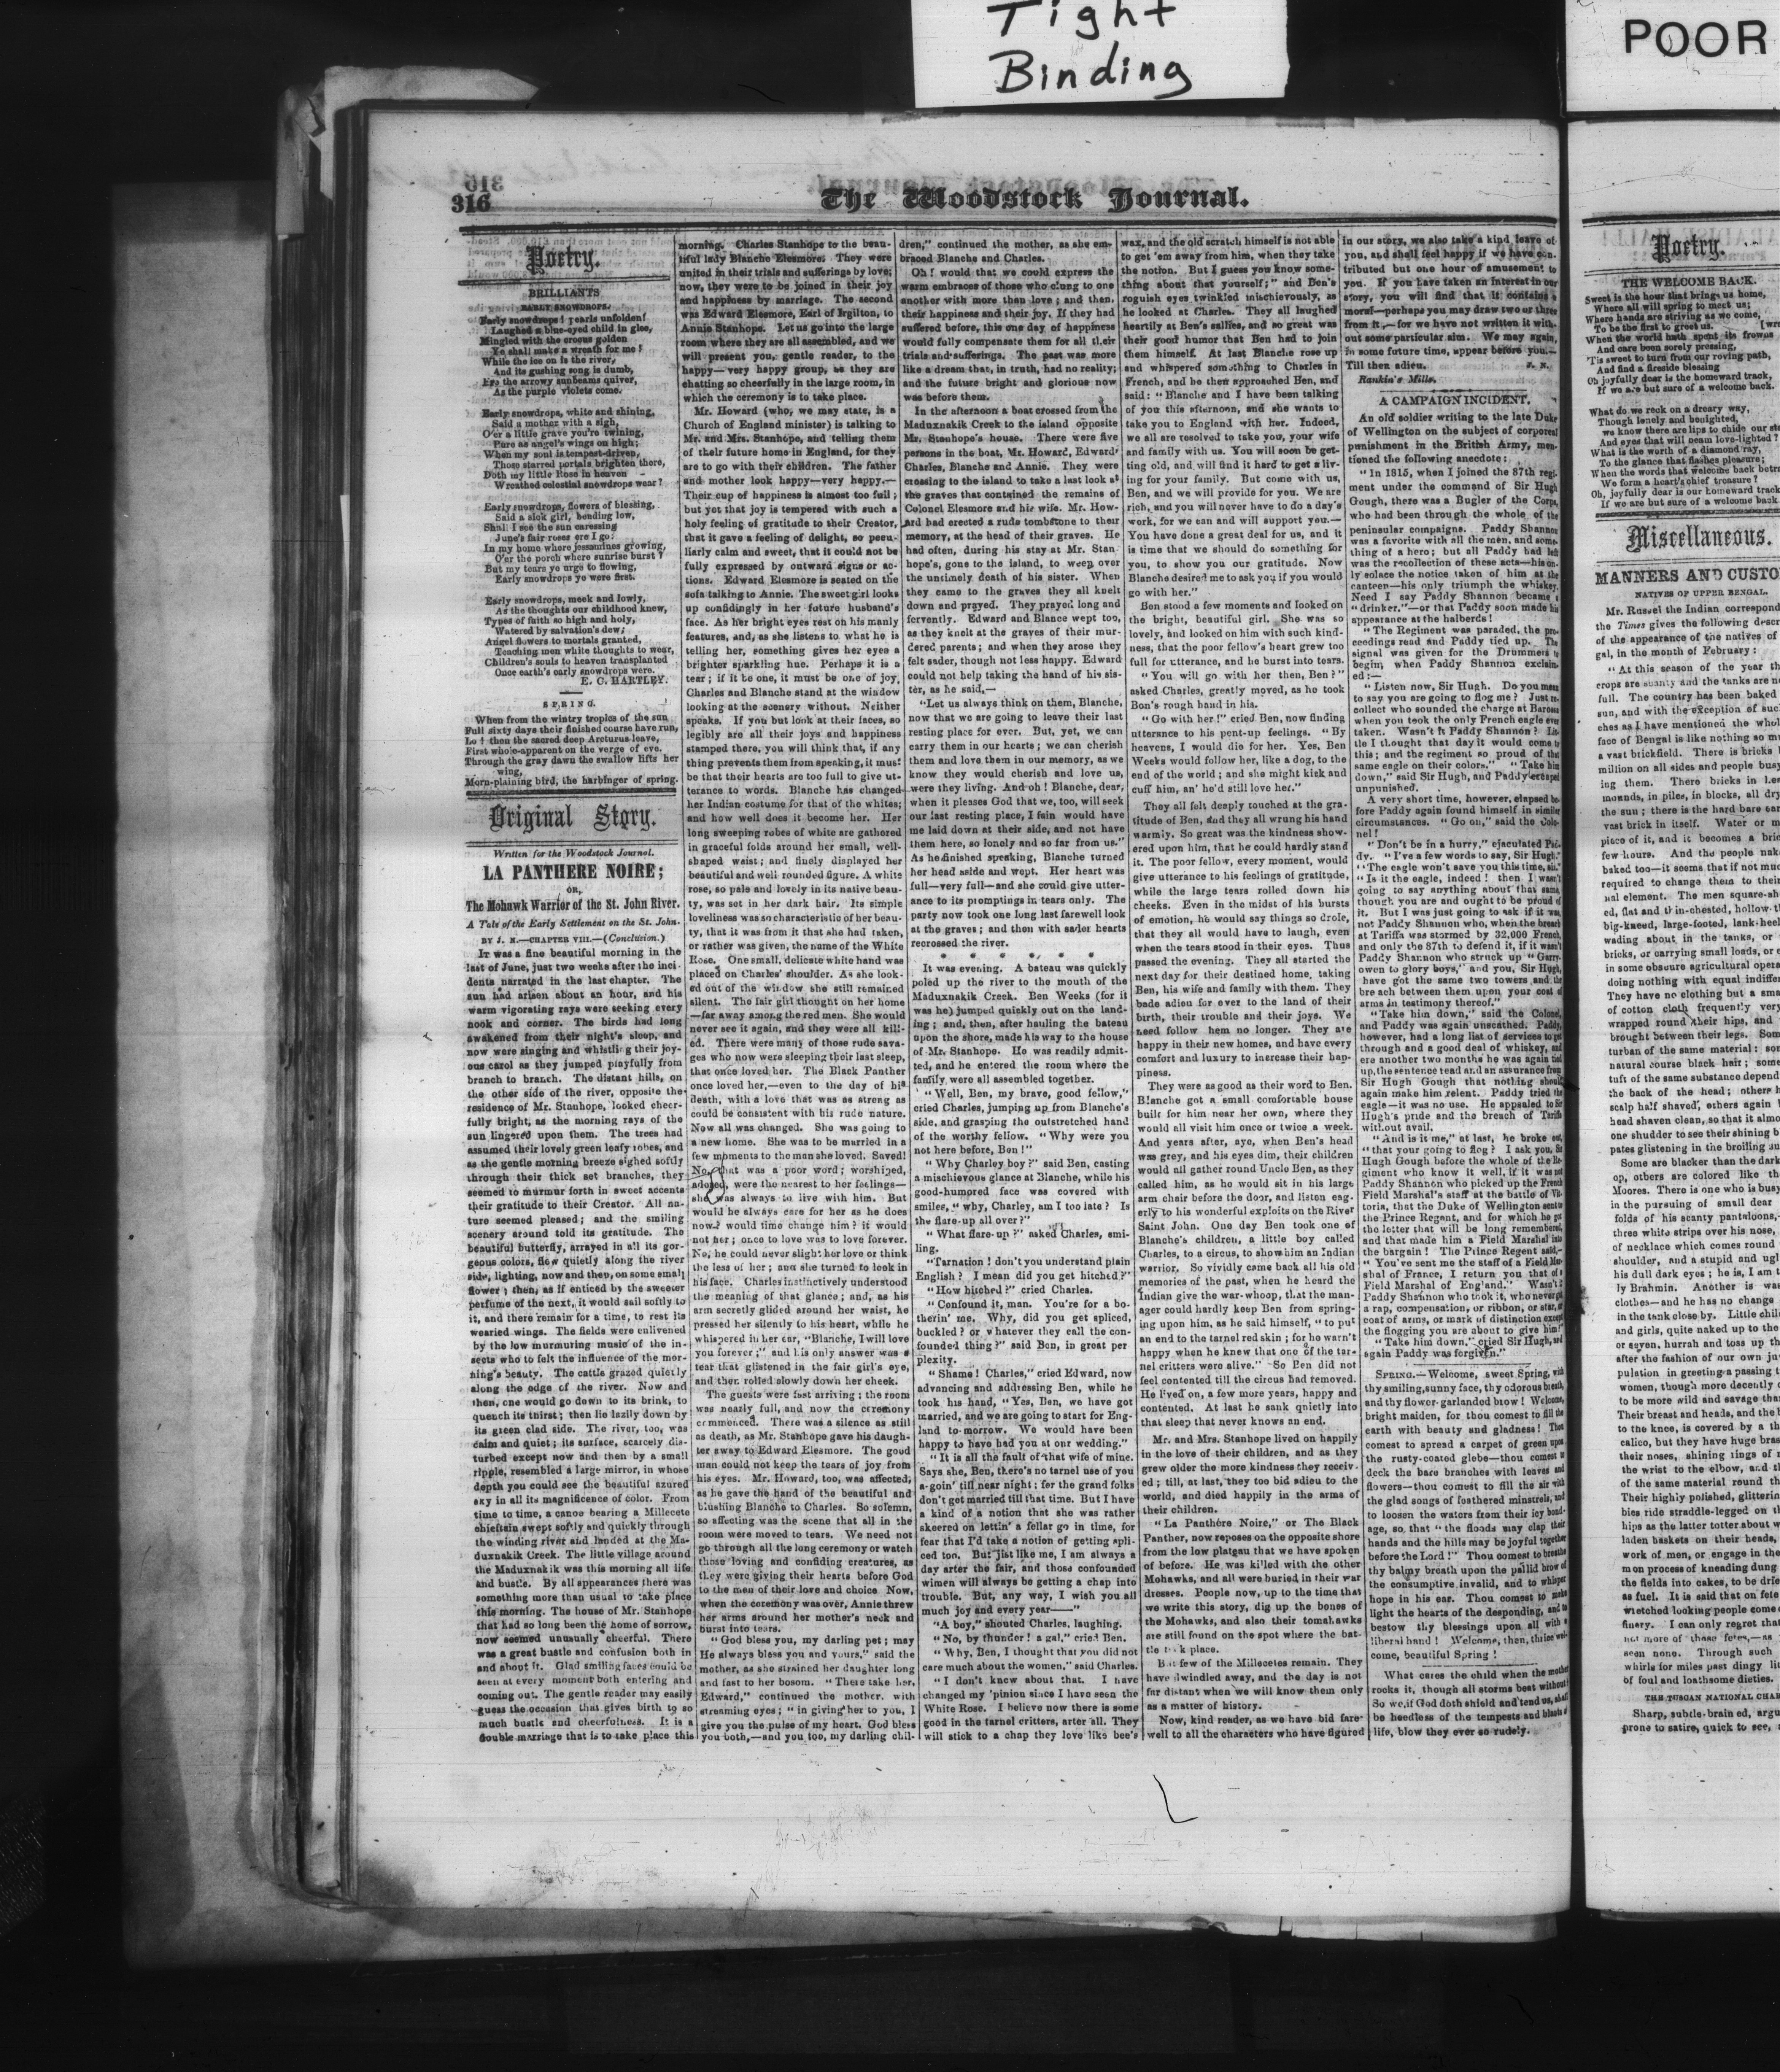 Tight
Binding
POOR
316
The Woodstock Journal.
Poetry.
BRILLIANTS
EARLY SNOWDROPS.
Early snowdrops! pearls unfolden!
Laughed a blue-eyed child in glee,
Mingled with the crocus golden
Ye shall make a wreath for me!
While the ice on is the river,
And its gushing song is dumb,
Ere the arrowy sunbeams quiver,
As the purple violets come.
Early snowdrops, white and shining,
Said a mother with a sigh,
O'er a little grave you're twining,
Pure as angel's wings on high;
When my soul is tempest-driven,
Those starred portals brighten there,
Doth my little Rose in heaven
Wreathed celestial snowdrops wear?
Early snowdrops, flowers of blessing,
Said a sick girl, bending low,
Shall I see the sun caressing
June's fair roses ere I go?
In my home where jessamines growing,
O'er the porch where sunrise burst?
But my tears ye urge to flowing,
Early snowdrops ye were first.
Early snowdrops, meek and lowly,
As the thoughts our childhood knew,
Types of faith so high and holy,
Watered by salvation's dew;
Angel flowers to mortals granted,
Teaching men white thoughts to wear,
Children's souls to heaven transplanted
Once earth's early snowdrops were.
E. C. HARTLEY.
SPRING.
When from the wintry tropics of the sun
Full sixty days their finished course have run,
Lo! then the sacred deep Arcturus leave,
First whole-apparent on the verge of eve.
Through the gray dawn the swallow lifts her
wing,
Morn-plaining bird, the harbinger of spring.
Original Story.
Written for the Woodstock Journal.
LA PANTHERE NOIRE;
OR,
The Mohawk Warrior of the St. John River.
A Tale of the Early Settlement on the St. John.
BY J. N.—CHAPTER VIII.—(Conclusion.)
It was a fine beautiful morning in the
last of June, just two weeks after the inci-
dents narrated in the last chapter. The
sun had arisen about an hour, and his
warm vigorating rays were seeking every
nook and corner. The birds had long
awakened from their night's sleep, and
now were singing and whistling their joy-
ous carol as they jumped playfully from
branch to branch. The distant hills, on
the other side of the river, opposite the
residence of Mr. Stanhope, looked cheer-
fully bright, as the morning rays of the
sun lingered upon them. The trees had
assumed their lovely green leafy robes, and
as the gentle morning breeze sighed softly
through their thick set branches, they
seemed to murmur forth in sweet accents
their gratitude to their Creator. All na-
ture seemed pleased; and the smiling
scenery around told its gratitude. The
beautiful butterfly, arrayed in all its gor-
geous colors, flew quietly along the river
side, lighting, now and then, on some small
flower; then, as if enticed by the sweeter
perfume of the next, it would sail softly to
it, and there remain for a time, to rest its
wearied wings. The fields were enlivened
by the low murmuring music of the in-
sects who to felt the influence of the mor-
ning's beauty. The cattle grazed quietly
along the edge of the river. Now and
then, one would go down to its brink, to
quench its thirst; then lie lazily down by
its green clad side. The river, too, was
calm and quiet; its surface, scarcely dis-
turbed except now and then by a small
ripple, resembled a large mirror, in whose
depth you could see the beautiful azured
sky in all its magnificence of color. From
time to time, a canoe bearing a Millecete
chieftain swept softly and quickly through
the winding river and landed at the Ma-
duxnakik Creek. The little village around
the Maduxnakik was this morning all life
and bustle. By all appearances there was
something more than usual to take place
this morning. The house of Mr. Stanhope
that had so long been the home of sorrow,
now seemed unusually cheerful. There
was a great bustle and confusion both in
and about it. Glad smiling faces could be
seen at every moment both entering and
coming out. The gentle reader may easily
guess the occasion that gives birth to so
much bustle and cheerfulness. It is a
double marriage that is to take place this
morning. Charles Stanhope to the beau-
tiful lady Blanche Elesmore. They were
united in their trials and sufferings by love;
now, they were to be joined in their joy
and happiness by marriage. The second
was Edward Elesmore, Earl of Irgilton, to
Annie Stanhope. Let us go into the large
room where they are all assembled, and we
will present you, gentle reader, to the
happy—very happy group, as they are
chatting so cheerfully in the large room, in
which the ceremony is to take place.
Mr. Howard (who, we may state, is a
Church of England minister) is talking to
Mr. and Mrs. Stanhope, and telling them
of their future home in England, for they
are to go with their children. The father
and mother look happy—very happy.—
Their cup of happiness is almost too full;
but yet that joy is tempered with such a
holy feeling of gratitude to their Creator,
that it gave a feeling of delight, so pecu-
liarly calm and sweet, that it could not be
fully expressed by outward signs or ac-
tions. Edward Elesmore is seated on the
sofa talking to Annie. The sweet girl looks
up confidingly in her future husband's
face. As her bright eyes rest on his manly
features, and, as she listens to what he is
telling her, something gives her eyes a
brighter sparkling hue. Perhaps it is a
tear; if it be one, it must be one of joy,
Charles and Blanche stand at the window
looking at the scenery without. Neither
speaks. If you but look at their faces, so
legibly are all their joys and happiness
stamped there, you will think that, if any
thing prevents them from speaking, it must
be that their hearts are too full to give ut-
terance to words. Blanche has changed
her Indian costume for that of the whites;
and how well does it become her. Her
long sweeping robes of white are gathered
in graceful folds around her small, well-
shaped waist; and finely displayed her
beautiful and well rounded figure. A white
rose, so pale and lovely in its native beau-
ty, was set in her dark hair. Its simple
loveliness was so characteristic of her beau-
ty, that it was from it that she had taken,
or rather was given, the name of the White
Rose. One small, delicate white hand was
placed on Charles' shoulder. As she look-
ed out of the window she still remained
silent. The fair girl thought on her home
—far away among the red men. She would
never see it again, and they were all kill-
ed. There were many of those rude sava-
ges who now were sleeping their last sleep,
that once loved her. The Black Panther
once loved her,—even to the day of his
death, with a love that was as strong as
could be consistent with his rude nature.
Now all was changed. She was going to
a new home. She was to be married in a
few moments to the man she loved. Saved!
No, that was a poor word; worshiped,
adored, were the nearest to her feelings—
she was always to live with him. But
would he always care for her as he does
now? would time change him? it would
not her; once to love was to love forever.
No, he could never slight her love or think
the less of her; and she turned to look in
his face. Charles instinctively understood
the meaning of that glance; and, as his
arm secretly glided around her waist, he
pressed her silently to his heart, while he
whispered in her ear, "Blanche, I will love
you forever;" and his only answer was a
tear that glistened in the fair girl's eye,
and then rolled slowly down her cheek.
The guests were fast arriving; the room
was nearly full, and now the ceremony
commenced. There was a silence as still
as death, as Mr. Stanhope gave his daugh-
ter away to Edward Elesmore. The good
man could not keep the tears of joy from
his eyes. Mr. Howard, too, was affected,
as he gave the hand of the beautiful and
blushing Blanche to Charles. So solemn,
so affecting was the scene that all in the
room were moved to tears. We need not
go through all the long ceremony or watch
those loving and confiding creatures, as
they were giving their hearts before God
to the men of their love and choice. Now,
when the ceremony was over, Annie threw
her arms around her mother's neck and
burst into tears.
"God bless you, my darling pet; may
He always bless you and yours," said the
mother, as she strained her daughter long
and fast to her bosom. "There take her,
Edward," continued the mother, with
streaming eyes; "in giving her to you, I
give you the pulse of my heart. God bless
you both,—and you too, my darling chil-
dren," continued the mother, as she em-
braced Blanche and Charles.
Oh! would that we could express the
warm embraces of those who clung to one
another with more than love; and then,
their happiness and their joy. If they had
suffered before, this one day of happiness
would fully compensate them for all their
trials and sufferings. The past was more
like a dream that, in truth, had no reality;
and the future bright and glorious now
was before them.
In the afternoon a boat crossed from the
Maduxnakik Creek to the island opposite
Mr. Stanhope's house. There were five
persons in the boat, Mr. Howard, Edward,
Charles, Blanche and Annie. They were
crossing to the island to take a last look at
the graves that contained the remains of
Colonel Elesmore and his wife. Mr. How-
ard had erected a rude tombstone to their
memory, at the head of their graves. He
had often, during his stay at Mr. Stan
hope's, gone to the island, to weep over
the untimely death of his sister. When
they came to the graves they all knelt
down and prayed. They prayed long and
fervently. Edward and Blance wept too,
as they knelt at the graves of their mur-
dered parents; and when they arose they
felt sader, though not less happy. Edward
could not help taking the hand of his sis-
ter, as he said,—
"Let us always think on them, Blanche,
now that we are going to leave their last
resting place for ever. But, yet, we can
carry them in our hearts; we can cherish
them and love them in our memory, as we
know they would cherish and love us,
were they living. And oh! Blanche, dear,
when it pleases God that we, too, will seek
our last resting place, I fain would have
me laid down at their side, and not have
them here, so lonely and so far from us."
As he finished speaking, Blanche turned
her head aside and wept. Her heart was
full—very full—and she could give utter-
ance to its promptings in tears only. The
party now took one long last farewell look
at the graves; and then with sader hearts
recrossed the river.
* * * * * *
It was evening. A bateau was quickly
poled up the river to the mouth of the
Maduxnakik Creek. Ben Weeks (for it
was he) jumped quickly out on the land-
ing; and, then, after hauling the bateau
upon the shore, made his way to the house
of Mr. Stanhope. He was readily admit-
ted, and he entered the room where the
family were all assembled together.
"Well, Ben, my brave, good fellow,"
cried Charles, jumping up from Blanche's
side, and grasping the outstretched hand
of the worthy fellow. "Why were you
not here before, Ben!"
"Why Charley boy?" said Ben, casting
a mischievous glance at Blanche, while his
good-humored face was covered with
smiles, "why, Charley, am I too late? Is
the flare-up all over?"
"What flare-up?" asked Charles, smi-
ling.
"Tarnation! don't you understand plain
English? I mean did you get hitched?"
"How hitched?" cried Charles.
"Confound it, man. You're for a bo-
therin' me. Why, did you get spliced,
buckled? or whatever they call the con-
founded thing?" said Ben, in great per
plexity.
"Shame! Charles," cried Edward, now
advancing and addressing Ben, while he
took his hand, "Yes, Ben, we have got
married, and we are going to start for Eng-
land to-morrow. We would have been
happy to have had you at our wedding."
"It is all the fault of that wife of mine.
Says she, Ben, there's no tarnel use of you
a-goin' till near night; for the grand folks
don't get married till that time. But I have
a kind of a notion that she was rather
skeered on lettin' a fellar go in time, for
fear that I'd take a notion of getting spli-
ced too. But jist like me, I am always a
day arter the fair, and those confounded
wimen will always be getting a chap into
trouble. But, any way, I wish you all
much joy and every year——"
"A boy," shouted Charles, laughing.
"No, by thunder! a gal," cried Ben.
"Why, Ben, I thought that you did not
care much about the women," said Charles.
"I don't knew about that. I have
changed my 'pinion since I have seen the
White Rose. I believe now there is some
good in the tarnel critters, arter all. They
will stick to a chap they love like bee's
wax, and the old scratch himself is not able
to get 'em away from him, when they take
the notion. But I guess you know some-
thing about that yourself;" and Ben's
roguish eyes twinkled mischievously, as
he looked at Charles. They all laughed
heartily at Ben's sallies, and so great was
their good humor that Ben had to join
them himself. At last Blanche rose up
and whispered something to Charles in
French, and he then approached Ben, and
said: "Blanche and I have been talking
of you this afternoon, and she wants to
take you to England with her. Indeed,
we all are resolved to take you, your wife
and family with us. You will soon be get-
ting old, and will find it hard to get a liv-
ing for your family. But come with us,
Ben, and we will provide for you. We are
rich, and you will never have to do a day's
work, for we can and will support you.—
You have done a great deal for us, and it
is time that we should do something for
you, to show you our gratitude. Now
Blanche desired me to ask you if you would
go with her."
Ben stood a few moments and looked on
the bright, beautiful girl. She was so
lovely, and looked on him with such kind-
ness, that the poor fellow's heart grew too
full for utterance, and he burst into tears.
"You will go with her then, Ben?"
asked Charles, greatly moved, as he took
Ben's rough hand in his.
"Go with her!" cried Ben, now finding
utterance to his pent-up feelings. "By
heavens, I would die for her. Yes, Ben
Weeks would follow her, like a dog, to the
end of the world; and she might kick and
cuff him, an' he'd still love her."
They all felt deeply touched at the gra-
titude of Ben, and they all wrung his hand
warmly. So great was the kindness show-
ered upon him, that he could hardly stand
it. The poor fellow, every moment, would
give utterance to his feelings of gratitude,
while the large tears rolled down his
cheeks. Even in the midst of his bursts
of emotion, he would say things so drole,
that they all would have to laugh, even
when the tears stood in their eyes. Thus
passed the evening. They all started the
next day for their destined home, taking
Ben, his wife and family with them. They
bade adieu for ever to the land of their
birth, their trouble and their joys. We
need follow hem no longer. They are
happy in their new homes, and have every
comfort and luxury to increase their hap-
piness.
They were as good as their word to Ben.
Blanche got a small comfortable house
built for him near her own, where they
would all visit him once or twice a week.
And years after, aye, when Ben's head
was grey, and his eyes dim, their children
would all gather round Uncle Ben, as they
called him, as he would sit in his large
arm chair before the door, and listen eag-
erly to his wonderful exploits on the River
Saint John. One day Ben took one of
Blanche's children, a little boy called
Charles, to a circus, to show him an Indian
warrior. So vividly came back all his old
memories of the past, when he heard the
Indian give the war-whoop, that the man-
ager could hardly keep Ben from spring-
ing upon him, as he said himself, "to put
an end to the tarnel red skin; for he warn't
happy when he knew that one of the tar-
nel critters were alive." So Ben did not
feel contented till the circus had removed.
He lived on, a few more years, happy and
contented. At last he sank quietly into
that sleep that never knows an end.
Mr. and Mrs. Stanhope lived on happily
in the love of their children, and as they
grew older the more kindness they receiv-
ed; till, at last, they too bid adieu to the
world, and died happily in the arms of
their children.
"La Panthère Noire," or The Black
Panther, now reposes on the opposite shore
from the low plateau that we have spoken
of before. He was killed with the other
Mohawks, and all were buried in their war
dresses. People now, up to the time that
we write this story, dig up the bones of
the Mohawks, and also their tomahawks
are still found on the spot where the bat-
tle took place.
But few of the Millecetes remain. They
have dwindled away, and the day is not
far distant when we will know them only
as a matter of history.
Now, kind reader, as we have bid fare-
well to all the characters who have figured
in our story, we also take a kind leave of
you, and shall feel happy if we have con-
tributed but one hour of amusement to
you. If you have taken an interest in our
story, you will find that it contains a
moral—perhaps you may draw two or three
from it,—for we have not written it with-
out some particular aim. We may again,
in some future time, appear before you.—
Till then adieu. J. N.
Rankin's Mills.
A CAMPAIGN INCIDENT.
An old soldier writing to the late Duke
of Wellington on the subject of corporeal
punishment in the British Army, men-
tioned the following anecdote:
"In 1815, when I joined the 87th regi-
ment under the command of Sir Hugh
Gough, there was a Bugler of the Corps,
who had been through the whole of the
peninsular compaigne. Paddy Shannon
was a favorite with all the men, and some-
thing of a hero; but all Paddy had left
was the recollection of these acts—his on-
ly solace the notice taken of him at the
canteen—his only triumph the whiskey.
Need I say Paddy Shannon became a
"drinker."—or that Paddy soon made his
appearance at the halberds!
"The Regiment was paraded, the pro-
ceedings read and Paddy tied up. The
signal was given for the Drummers to
begin, when Paddy Shannon exclaim-
ed:—
"Listen now, Sir Hugh. Do you mean
to say you are going to flog me? Just re-
collect who sounded the charge at Barossa
when you took the only French eagle ever
taken. Wasn't it Paddy Shannon? Lit-
tle I thought that day it would come to
this; and the regiment so proud of that
same eagle on their colors." "Take him
down," said Sir Hugh, and Paddy escaped
unpunished.
A very short time, however, elapsed be-
fore Paddy again found himself in similar
circumstances. "Go on," said the Colo-
nel!
"Don't be in a hurry," ejaculated Pad-
dy. "I've a few words to say, Sir Hugh."
"The eagle won't save you this time, sir."
"Is it the eagle, indeed! then I wasn't
going to say anything about that same,
though you are and ought to be proud of
it. But I was just going to ask if it was
not Paddy Shannon who, when the breach
at Tariffa was stormed by 32,000 French,
and only the 87th to defend it, if it wasn't
Paddy Shannon who struck up "Garry-
owen to glory boys," and you, Sir Hugh,
have got the same two towers and the
breach between them upon your coat of
arms in testimony thereof."
"Take him down," said the Colonel,
and Paddy was again unscathed. Paddy,
however, had a long list of services to get
through and a good deal of whiskey, and
ere another two months he was again tied
up, the sentence read and an assurance from
Sir Hugh Gough that nothing should
again make him relent. Paddy tried the
eagle—it was no use. He appealed to Sir
Hugh's pride and the breach of Tariffa
without avail.
"And is it me," at last, he broke out,
"that your going to flog? I ask you, Sir
Hugh Gough before the whole of the Re-
giment who know it well, if it was not
Paddy Shannon who picked up the French
Field Marshal's staff at the battle of Vit-
toria, that the Duke of Wellington sent to
the Prince Regant, and for which he got
the letter that will be long remembered,
and that made him a Field Marshal into
the bargain! The Prince Regent said,—
"You've sent me the staff of a Field Mar-
shal of France, I return you that of a
Field Marshal of England." Wasn't it
Paddy Shannon who took it, who never got
a rap, compensation, or ribbon, or star, or
coat of arms, or mark of distinction except
the flogging you are about to give him!"
"Take him down," cried Sir Hugh, and
again Paddy was forgiven."
SPRING.—Welcome, sweet Spring, with
thy smiling, sunny face, thy odorous breath,
and thy flower-garlanded brow! Welcome,
bright maiden, for thou comest to fill the
earth with beauty and gladness! Thou
comest to spread a carpet of green upon
the rusty-coated globe—thou comest to
deck the bare branches with leaves and
flowers—thou comest to fill the air with
the glad songs of feathered minstrels, and
to loosen the waters from their icy bond-
age, so that "the floods may clap their
hands and the hills may be joyful together
before the Lord!" Thou comest to breathe
thy balmy breath upon the pallid brow of
the consumptive invalid, and to whisper
hope in his ear. Thou comest to make
light the hearts of the desponding, and to
bestow thy blessings upon all with a
liberal hand! Welcome, then, thrice wel-
come, beautiful Spring!
What cares the child when the mother
rocks it, though all storms beat without?
So we, if God doth shield and tend us, shall
be heedless of the tempests and blasts of
life, blow they ever so rudely.
Poetry.
THE WELCOME BACK.
Sweet is the hour that brings us home,
Where all will spring to meet us;
Where hands are striving as we come,
To be the first to greet us.
When the world hath spent its frowns
And care been sorely pressing,
'Tis sweet to turn from our roving path,
And find a fireside blessing
Oh joyfully dear is the homeward track,
If we are but sure of a welcome back.
What do we reck on a dreary way,
Though lonely and benighted,
we know there are lips to chide our
And eyes that will beam love-lighted?
What is the worth of a diamond ray,
To the glance that flashes pleasure;
When the words that welcome back
We form a heart's chief treasure?
Oh, joyfully dear is our homeward track
If we are but sure of a welcome back
Miscellaneous.
MANNERS AND CUSTO
NATIVES OF UPPER BENGAL.
Mr. Russel the Indian correspond
the Times gives the following descr
of the appearance of the natives of
gal, in the month of February:
"At this season of the year th
crops are scanty and the tanks are
full. The country has been baked
sun, and with the exception of suc
ches as I have mentioned the whol
face of Bengal is like nothing so mu
a vast brickfield. There is bricks
million on all sides and people busy
ing them. There bricks in
mounds, in piles, in blocks, all dry
the sun; there is the hard bare ear
vast brick in itself. Water or m
piece of it, and it becomes a bric
few hours. And the people nak
baked too—it seems that if not muc
required to change them to their
nal element. The men square-sh
ed, flat and thin-chested, hollow-t
big-kneed, large-footed, lank-heel
wading about in the tanks, or
bricks, or carrying small loads, or
in some obscure agricultural opera
doing nothing with equal indiffer
They have no clothing but a sma
of cotton cloth frequently very
wrapped round their hips, and
brought between their legs. Som
turban of the same material: som
natural course black hair; some
tuft of the same substance depend
the back of the head; others
scalp half shaved, others again
head shaven clean, so that it almo
one shudder to see their shining b
pates glistening in the broiling su
Some are blacker than the dark
op, others are colored like th
Moores. There is one who is busy
in the pursuing of small dear
folds of his scanty pantaloons,
three white strips over his nose,
of necklace which comes round
shoulder, and a stupid and ugl
his dull dark eyes; he is, I am t
ly Brahmin. Another is
clothes—and he has no change
in the tank close by. Little chil
and girls, quite naked up to the
or seven, hurrah and toss up th
after the fashion of our own ju
pulation in greeting a passing t
women, though more decently
to be more wild and savage tha
Their breast and heads, and the
to the knee, is covered by a th
calico, but they have huge bras
their noses, shining rings of
the wrist to the elbow, and th
of the same material round th
Their highly polished, glitterin
bies ride straddle-legged on th
hips as the latter totter about w
laden baskets on their heads,
work of men, or engage in the
mon process of kneading dung
the fields into cakes, to be drie
as fuel. It is said that on fete
wretched looking people come
finery. I can only regret that
not more of these fetes,—as
seen none. Through such
whirls for miles past dingy lit
of foul and loathsome dieties.
THE TUSCAN NATIONAL CHAR
Sharp, subtle-brained, argu
prone to satire, quick to see,